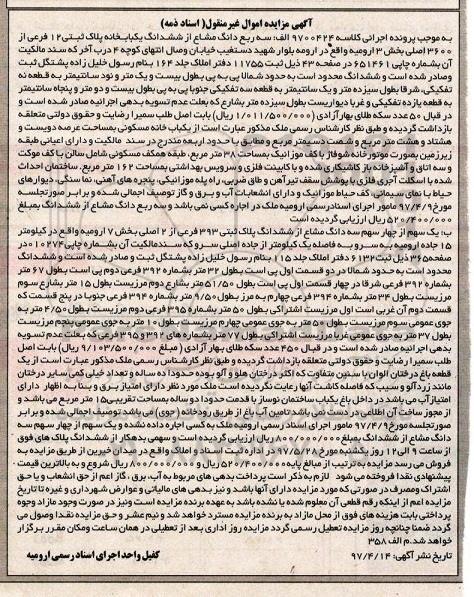 آگهی مزایده اموال غیرمنقول ( اسناد ذمه)
به موجب پرونده اجرائی کلاسه ۹۷۰۰۴۲۴ الف: سه ربع دانگ مشاع از ششدانگ یکبابخانه پلاک ثبتی ۱۲ فرعی از
۳۶۰۰ اصلی بخش ۳ ارومیه واقع در ارومه بلوار شهید دستغیب خیابان وصال انتهای کوچه ۴ درب آخر که سند مالکیت
آن بشماره چاپی ۶۵۱۴۶۱ در صفحه ۴۳ ذیل ثبت ۱۱۷۵۵ دفتر املاک جلد ۱۶۴ بنام رسول خلیل زاده پشتگل ثبت
وصادر شده است و ششدانگ محدود است به حدود شمالا پی به پی بطول بیست و یک متر و نود سانتیمتر به قطعه نه
تفکیکی، شرقا بطول سیزده متر و یک سانتیمتر به قطعه سه تفکیکی جنوبا پی به پی بطول بیست و دو متر و پنجاه سانتیمتر
به قطعه یازده تفکیکی و غربا دیواریست بطول سیزده متر بشارع که بعلت عدم تسویه بدهی اجرائیه صادر شده است و
در قبال ۵۰ عدد سکه طلای بهار آزادی (۱/۰۱۱/۵۰۰/۰۰۰ ریال) بابت اصل طلب سمیرا رضایت و حقوق دولتی متعلقه
بازداشت گردیده و طبق نظر کارشناس رسمی ملک مذکور عبارت است از یکباب خانه مسکونی بمساحت عرصه دویست و
هشتاد و هشت متر مربع و شصت دسیمتر مربع و مطابق با حدود اربعه مندرج در سند مالکیت و دارای اعیانی طبقه
زیرزمین بصورت موتورخانه شوفاژ با کف موزائیک بمساحت ۳۸ متر مربع، طبقه همکف مسکونی شامل سالن با کف موکت
و سه اتاق و آشپزخانه باز کاشیکاری شده و با کابینت فلزی و سرویس بهداشتی بمساحت ۱۶۲ متر مربع، ساختمان احداث
شده با اسکلت آجری فلزی با پوشش سقف تیرآهن و طاق ضربی، راه پله موزائیکی، پنجره های آهنی، نما سنگی، دیوارهای
حیاط با نمای سیمانی کف حیاط موزائیک و دارای انشعابات آب و برق و گاز توصیف اجمالی شده و برابر صورتجلسه
مورخ ۹۷/۴/۹ مامور اجرای اسنادرسمی ارومیه ملک در اجاره کسی نمی باشد و سه ربع دانگ مشاع از ششدانگ بمبلغ
۵۲۰/۴۰۰/۰۰۰ ریال ارزیابی گردیده است
ب: یک سهم از چهار سهم سه دانگ مشاع از ششدانگ پلاک ثبتی ۳۹۳ فرعی از ۲ اصلی بخش ۷ ارومیه واقع در کیلومتر
۱۵ جاده ارومیه به سرو به فاصله یک کیلومتر از جاده اصلی سرو که سندمالکیت آن بشماره چاپی ۰۱۰۲۷۴ در
صفحه ۳۶۵ ذیل ثبت ۶۱۳۲ دفتر املاک جلد ۱۵ بنام رسول خلیل زاده پشتگل ثبت و صادر شده است و ششدانگ
محدود است به حدود شمالا در دو قسمت اول پی است بطول ۳۲ متر بشماره ۳۹۲ فرعی دوم پی است بطول ۶۷ متر
بشماره ۳۹۲ فرعی شرقا در چهار قسمت اول پی است بطول ۵۱/۵۰ متر بشارع دوم مرزیست بطول ۱۵ متر بشارع سوم
مرزیست بطول ۳۴ متر بشماره ۳۹۴ فرعی چهارم به مرز بطول ۹/۵۰ متر بشماره ۳۹۴ فرعی جنوبا در پنج قسمت که
قسمت دوم آن غربی است اول مرزیست اشتراکی بطول ۵۰ متر بشماره ۳۹۵ فرعی دوم مرزیست بطول ۴/۵۰ متر به
جوی عمومی سوم مرزیست بطول ۵۰ متر به جوی عمومی چهارم مرزیست بطول ۱۰ متر به جوی عمومی پنجم مرزیست
بطول ۳۷ متر به جوی عمومی غربا مرزیست اشتراکی بطول ۷۷ متر بشماره های ۳۹۲ و ۳۹۵ فرعی که بعلت عدم تسویه
بدهی اجرائیه صادر شده است و در قبال ۴۵۰ عدد سکه طلای بهار آزادی (۹/۱۰۳/۵۰۰/۰۰۰ ریال) بابت اصل
طلب سمیرا رضایت و حقوق دولتی متعلقه بازداشت گردیده و طبق نظر کارشناس رسمی ملک مذکور عبارت است از یک
قطعه باغ درختان الوان با سنین متفاوت که اکثر درختان هلو و آلو بوده حدودا ده ساله و تعداد خیلی کمی سایر درختان
مانند زردآلو و سیب که فاصله کاشت آنها رعایت نگردیده است ملک مورد نظر دارای امتیاز برق و بنا به اظهار دارای
امتیاز آب می باشد در داخل باغ یکباب ساختمان نوساز با قدمت حدود دو ساله بمساحت تقریبی ۱۵ متر مربع می باشد و
از مجوز ساخت آن اطلاعی در دست نمی باشد تامین آب باغ از طریق رودخانه (جوی) می باشد توصیف اجمالی شده و برابر
صورتجلسه مورخ ۹۷/۴/۹ مامور اجرای اسناد رسمی ارومیه ملک به کسی اجاره داده نشده و یک سهم از چهار سهم سه
دانگ مشاع از ششدانگ بمبلغ ۸۰۰/۰۰۰/۰۰۰ ریال ارزیابی گردیده است و سهمی بدهکار از ششدانگ پلاک های فوق
از ساعت ۹ الی ۱۲ روز یکشنبه مورخ ۹۷/۵/۷ در اداره ثبت اسناد و املاک واقع در خیابان عسگرآبادی از طریق مزایده به
فروش می رسد مزایده به ترتیب از مبالغ پایه ۵۲۰/۴۰۰/۰۰۰ ریال و ۸۰۰/۰۰۰/۰۰۰ ریال شروع و به بالاترین قیمت
پیشنهادی نقدا فروخته می شود لازم به ذکر است پرداخت بدهی های مربوط به آب، برق، گاز اعم از حق انشعاب و یا حق
اشتراک ومصرف در صورتی که مورد مزایده دارای آنها باشد و نیز بدهی های مالیاتی و عوارض شهرداری و غیره تا تاریخ
مزایده اعم از اینکه رقم قطعی آن معلوم شده یا نشده باشد به عهده برنده مزایده است ونیز در صورت وجود مازاد وجوه
پرداختی بابت هزینه های فوق از محل مازاد به برنده مزایده مسترد خواهد شد و نیم عشر و حق مزایده نقدا وصول می
گردد ضمنا چنانچه روز مزایده تعطیل رسمی گردد مزایده روز اداری بعد از تعطیلی در همان ساعت ومکان مقرر برگزار
خواهد شد.م الف ۳۵۸
تاریخ نشر آگهی: ۹۷/۴/۱۴
کفیل واحد اجرای اسناد رسمی ارومیه